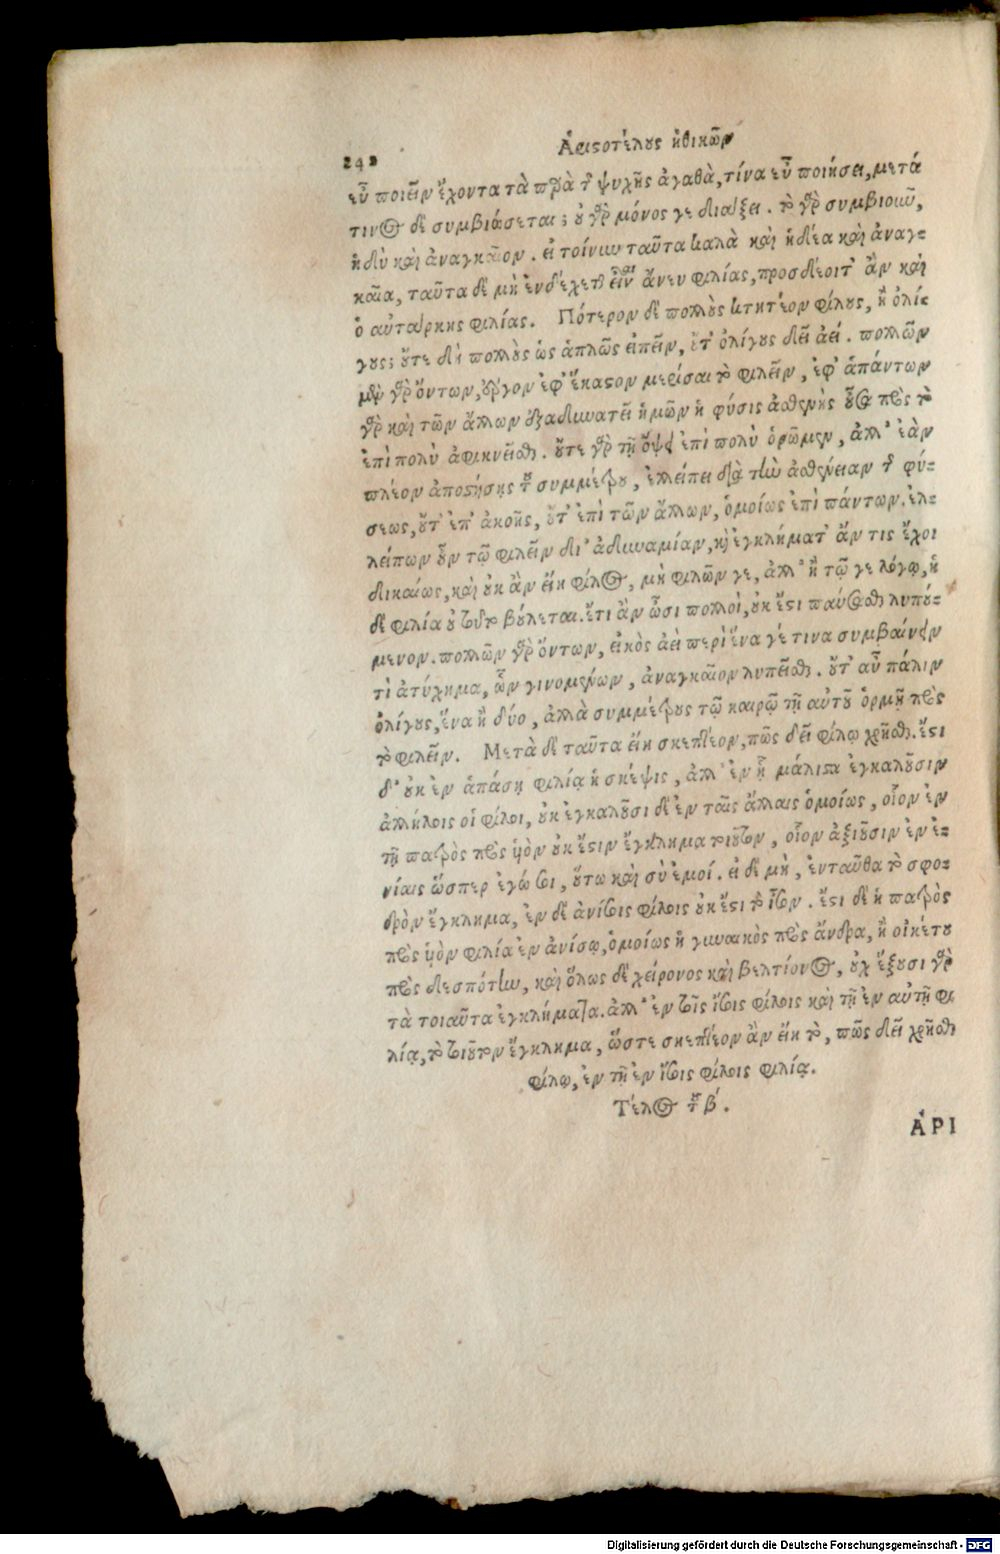 242 Ἀριστοτέλους ἠθικῶν
εὖ ποιεῖν ἔχοντα τὰ παρὰ τῆς ψυχῆς ἀγαθὰ, τίνα εὖ ποιήσει, μετά
τινος δὲ συμβιάσεται; οὐ γὰρ μόνος γε διάξει. τὸ γὰρ συμβιοῦν,
ἡδὺ καὶ ἀναγκαῖον. εἰ τοίνυν ταῦτα καλὰ καὶ ἡδέα καὶ ἀναγ-
καῖα, ταῦτα δὲ μὴ ἐνδέχεται εἶναι ἄνευ φιλίας, προσδέοιτ' ἂν καὶ
ὁ αὐτάρκης φιλίας. Πότερον δὲ πολλοὺς κτητέον φίλους, ἢ ὀλί-
γους; οὔτε δὴ πολλοὺς ὡς ἁπλῶς εἰπεῖν, οὔτ' ὀλίγους δεῖ ἀεί. πολλῶν
μὲν γὰρ ὄντων, ἔργον ἐφ' ἕκαστον μερίσαι τὸ φιλεῖν, ἐφ' ἁπάντων
γὰρ καὶ τῶν ἄλλων ἐξαδυνατεῖ ἡμῶν ἡ φύσις ἀσθενὴς οὖσα πρὸς τὸ
ἐπὶ πολὺ ἀφικνεῖσθαι. οὔτε γὰρ τῇ ὄψει ἐπὶ πολὺ ὁρῶμεν, ἀλλ' ἐὰν
πλέον ἀποστήσῃς τοῦ συμμέτρου, ἐλλείπει διὰ τὴν ἀσθένειαν τῆς φύ-
σεως, οὔτ' ἐπ' ἀκοῆς, οὔτ' ἐπὶ τῶν ἄλλων, ὁμοίως ἐπὶ πάντων. ἐλ-
λείπων οὖν τῷ φιλεῖν δι' ἀδυναμίαν, καὶ ἐγκλήματ' ἄν τις ἔχοι
δικαίως, καὶ οὐκ ἂν εἴη φίλος, μὴ φιλῶν γε, ἀλλ' ἢ τῷ γε λόγῳ, ἡ
δὲ φιλία οὐ τοῦτο βούλεται. ἔτι ἂν ὦσι πολλοὶ, οὐκ ἔστι παύσασθαι λυπού-
μενον. πολλῶν γὰρ ὄντων, εἰκὸς ἀεὶ περὶ ἕνα γέ τινα συμβαίνειν
τὶ ἀτύχημα, ὧν γινομένων, ἀναγκαῖον λυπεῖσθαι. οὔτ' αὖ πάλιν
ὀλίγους, ἕνα ἢ δύο, ἀλλὰ συμμέτρους τῷ καιρῷ τῇ αὑτοῦ ὁρμῇ πρὸς
τὸ φιλεῖν. Μετὰ δὲ ταῦτα εἴη σκεπτέον, πῶς δεῖ φίλῳ χρῆσθαι. ἔστι
δ' οὐκ ἐν ἁπάσῃ φιλίᾳ ἡ σκέψις, ἀλλ' ἐν ᾗ μάλιστα ἐγκαλοῦσιν
ἀλλήλοις οἱ φίλοι, οὐκ ἐγκαλοῦσι δὲ ἐν ταῖς ἄλλαις ὁμοίως, οἷον ἐν
τῇ πατρὸς πρὸς υἱὸν οὐκ ἔστιν ἔγκλημα τοιοῦτον, οἷον ἀξιοῦσιν ἐν ἐ-
νίαις ὥσπερ ἐγώ σοι, οὕτω καὶ σὺ ἐμοί. εἰ δὲ μὴ, ἐνταῦθα τὸ σφο-
δρὸν ἔγκλημα, ἐν δὲ ἀνίσοις φίλοις οὐκ ἔστι τὸ ἴσον. ἔστι δὲ ἡ πατρὸς
πρὸς υἱὸν φιλία ἐν ἀνίσῳ, ὁμοίως ἡ γυναικὸς πρὸς ἄνδρα, ἢ οἰκέτου
πρὸς δεσπότην, καὶ ὅλως δὲ χείρονος καὶ βελτίονος, οὐχ ἕξουσι γὰρ
τὰ τοιαῦτα ἐγκλήματα. ἀλλ' ἐν τοῖς ἴσοις φίλοις καὶ τῇ ἐν αὐτῇ φι
λίᾳ, τὸ τοιοῦτον ἔγκλημα, ὥστε σκεπτέον ἂν εἴη τὸ, πῶς δεῖ χρῆσθαι
φίλῳ, ἐν τῇ ἐν ἴσοις φίλοις φιλίᾳ.
Τέλος τοῦ β'.
ΑΡΙ
Digitalisierung gefördert durch die Deutsche Forschungsgemeinschaft - DFG